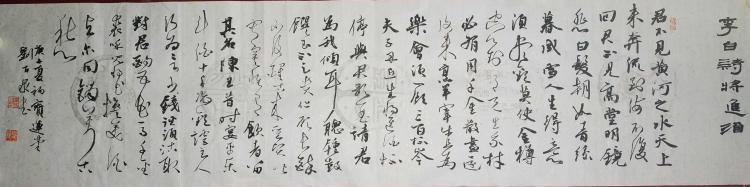 李白詩將進酒
君不見黃河之水天上
來奔流到海不復
回君不見高堂明鏡
悲白髮朝如青絲
暮成雪人生得意
須盡歡莫使金樽
空對月天生我材
必有用千金散盡還
復來烹羊宰牛且為
樂會須一飲三百杯岑
夫子丹丘生將進酒杯
停與君歌一曲請君
為我傾耳聽鐘鼓
饌玉不足貴但願長醉
不復醒古來聖賢皆
寂寞惟有飲者留
其名陳王昔時宴平樂
斗酒十千恣歡謔主人
何為言少錢徑須沽取
對君酌五花馬千金
裘呼兒將出換美酒
與爾同銷萬古
愁